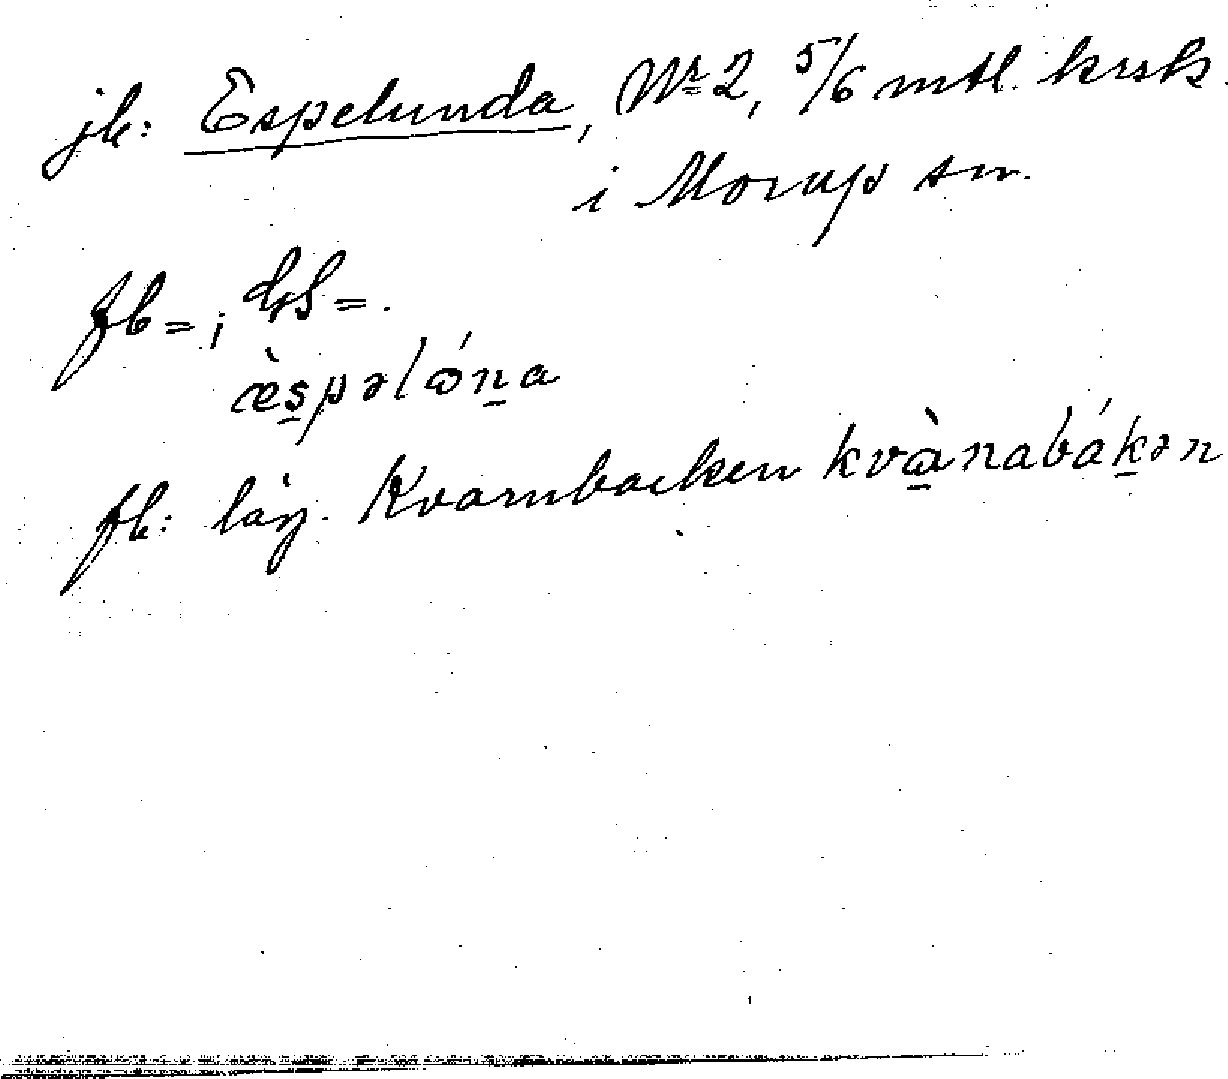 jb: Espelunda, Nr 2, 5/6 mtl. krsk.
i Morup sn.
fb = ; GS = .
æ̀s̱pəlɷ́ṉa
fb: läg. Kvarnbacken kvɑ̱̀nabáḵən